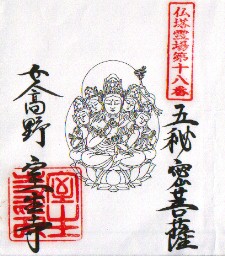 仏塔霊場第十八番
五秘密菩薩
女高野
室生寺